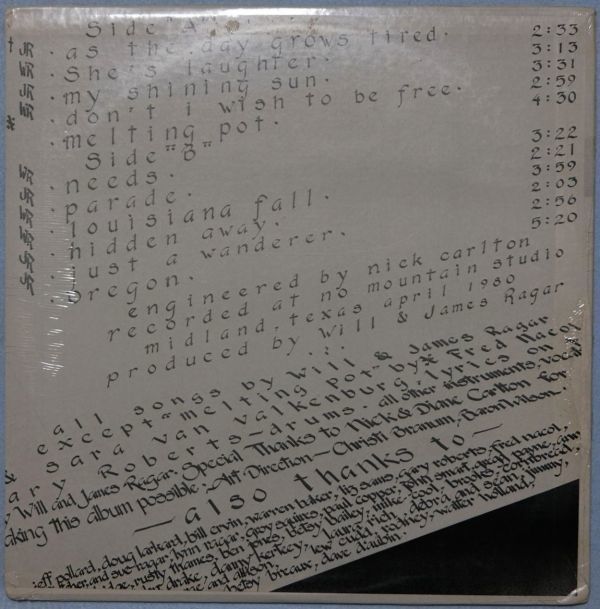 Side "A"
JR . as the day grows tired. 2:33
WR . She's laughter. 3:13
JR . my shining sun. 3:31
WR . don't i wish to be free. 2:59
* . melting pot. 4:30
Side "B"
WR . needs. 3:22
JR . parade. 2:21
WR . louisiana fall. 3:59
WR . hidden away. 2:03
JR . just a wanderer. 2:56
JR . oregon. 5:20
engineered by nick carlton
recorded at no mountain studio
midland, texas april 1980
produced by Will & James Ragar
all songs by Will & James Ragar
except "melting pot" by * Fred Nacol
& sara van valkenburg, lyrics on
ary Roberts - drums. all other instruments, vocal
y Will and James Ragar. Special Thanks to Nick & Diane Carlton for
aking this album possible. Art Direction - Christi Branum, Baron Wilson.
— also thanks to —
jeff pollard, doug larkard, bill ervin, warren baker, its sains, gary roberts, fred nacol,
fisher, and sue ragar, lynn ragar, groy squires, paul copper, john smart, cheryl payne,
rusty thames, ben jones, betsy bailey, mike cool, brooks, cornbread,
drake, danny herkey, laura, rich, debra and sean, jimmy,
and allison, lew budd, rodney, walter holland,
betsy breaux, dave d'aubin.